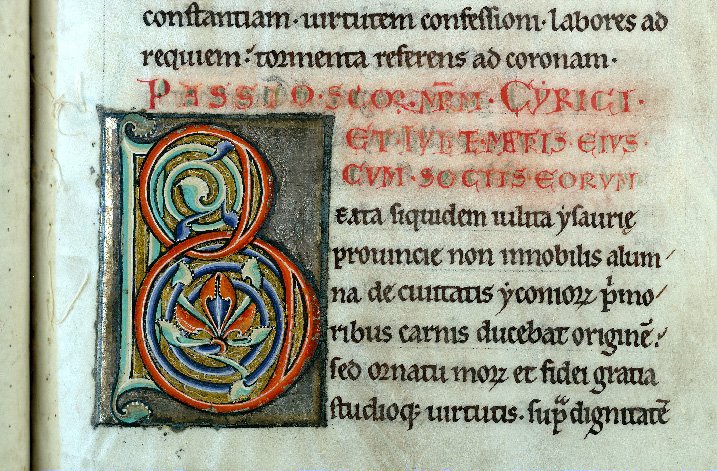 constantiam · uirtutem confessioni · labores ad
requiem · tormenta referens ad coronam ·
PASSIO · SCOR · MR̄M · CẎRICI ·
ET IULITE MATRIS EIUS ·
CUM · SOCIIS EORUM
Beata siquidem iulita ẏsaurię
prouincie non innobilis alum
na de ciuitatis ẏconioꝝ p̍mo
ribus carnis ducebat originē ·
sed ornatu moꝝ et fidei gratia
studioq; uirtutis · sup̄ dignitatē